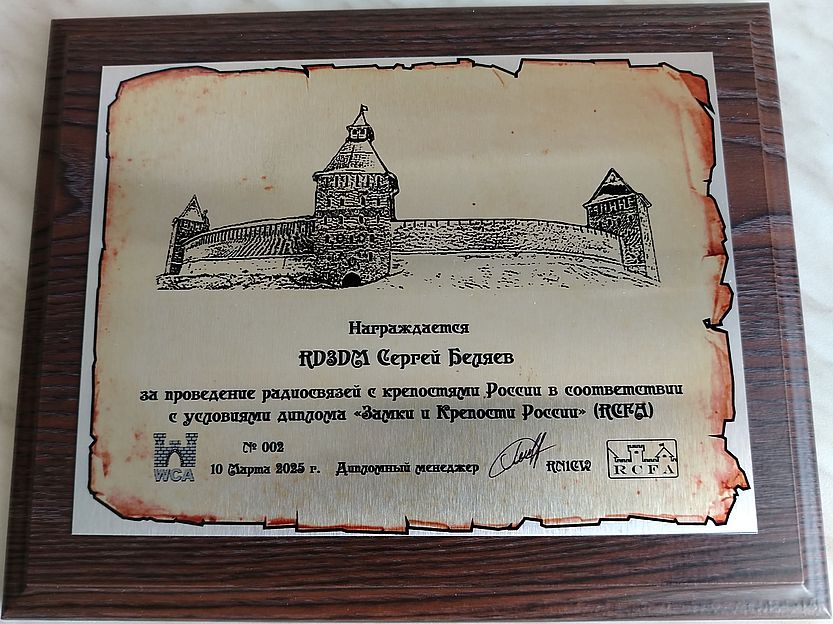 Награждается
RD3DM Сергей Беляев
за проведение радиосвязей с крепостями России в соответствии
с условиями диплома «Замки и Крепости России» (RCFA)
№ 002
10 Марта 2025 г. Дипломный менеджер RN1CW
WCA
RCFA